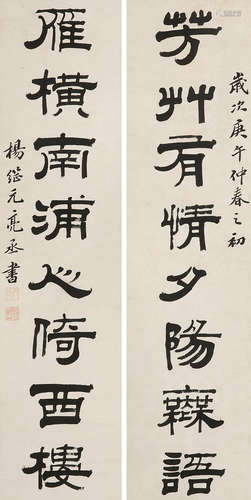 歲次庚午仲春之初
芳艸有情夕陽無語
雁橫南浦人倚西樓
楊繼元亮丞書